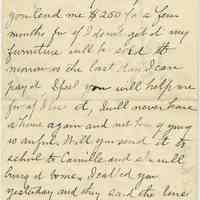 you lend me $250 for a few
months for if I don't get it my
furniture will be sold to
morrow is the last day I can
pay it I feel you will help me
for if I lose it, I will never have
a home again and not how I going
is awful. Will you send it to
school to Camille and she will
bring it home. I called you
yesterday and they said the line